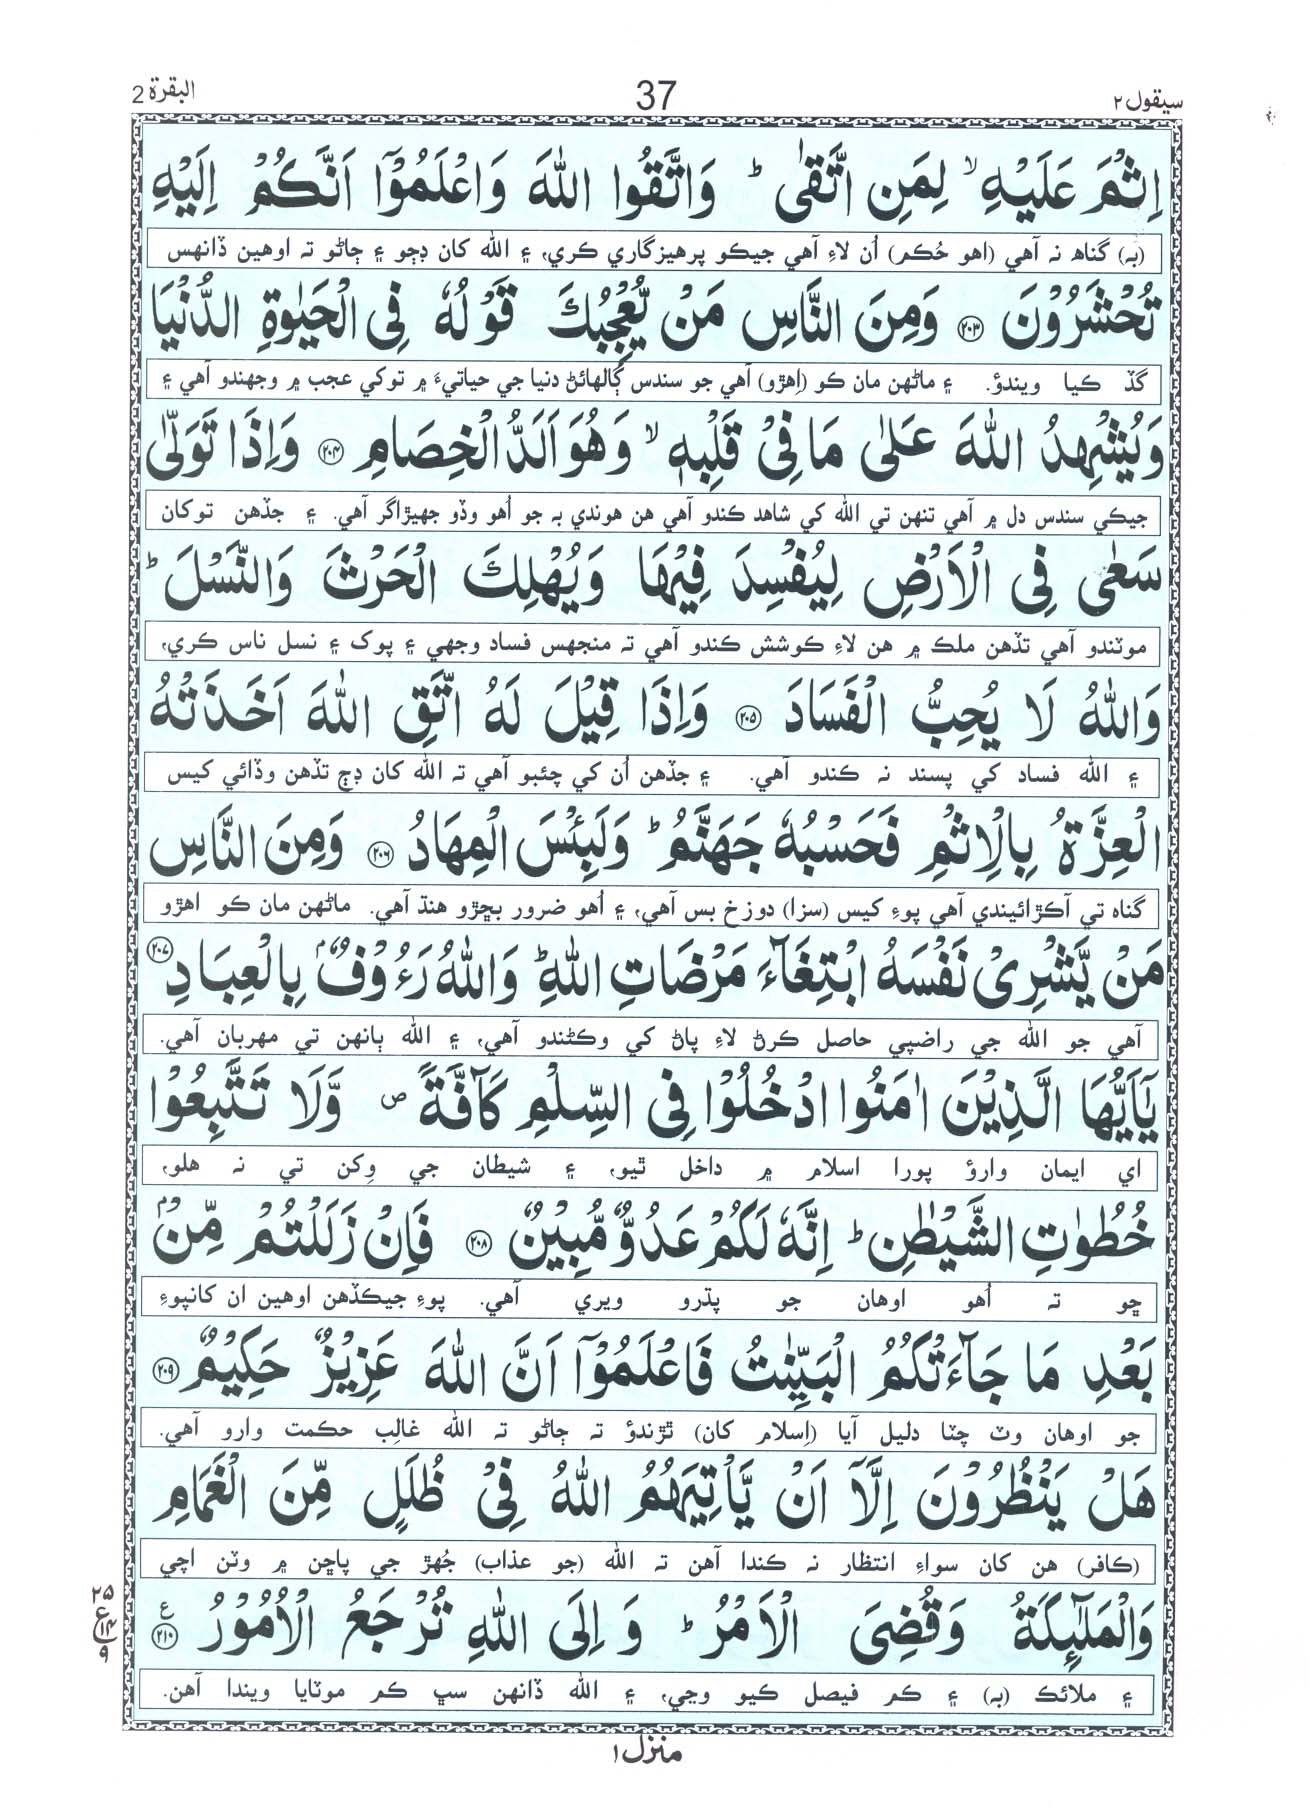 سيقول ٢
37
البقرة 2
اِثْمَ عَلَيْهِ ۙ لِمَنِ اتَّقٰى ؕ وَاتَّقُوا اللّٰهَ وَاعْلَمُوْٓا اَنَّكُمْ اِلَيْهِ
(به) گناھ نہ آهي (اهو حُڪم) اُن لاءِ آهي جيڪو پرهيزگاري ڪري، ۽ الله کان ڊڄو ۽ ڄاڻو تہ اوهين ڏانهس
تُحْشَرُوْنَ ﴿٢٠٣﴾ وَمِنَ النَّاسِ مَنْ يُّعْجِبُكَ قَوْلُهٗ فِى الْحَيٰوةِ الدُّنْيَا
گڏ ڪيا ويندؤ. ۽ ماڻهن مان ڪو (اِهڙو) آهي جو سندس ڳالهائڻ دنيا جي حياتيءَ ۾ توکي عجب ۾ وجهندو آهي ۽
وَيُشْهِدُ اللّٰهَ عَلٰى مَا فِىْ قَلْبِهٖ ۙ وَهُوَ اَلَدُّ الْخِصَامِ ﴿٢٠٤﴾ وَاِذَا تَوَلّٰى
جيڪي سندس دل ۾ آهي تنهن تي الله کي شاهد ڪندو آهي هن هوندي بہ جو اُهو وڏو جهيڙاگر آهي. ۽ جڏهن توکان
سَعٰى فِى الْاَرْضِ لِيُفْسِدَ فِيْهَا وَيُهْلِكَ الْحَرْثَ وَالنَّسْلَ ؕ
موٽندو آهي تڏهن ملڪ ۾ هن لاءِ ڪوشش ڪندو آهي تہ منجهس فساد وجهي ۽ پوک ۽ نسل ناس ڪري،
وَاللّٰهُ لَا يُحِبُّ الْفَسَادَ ﴿٢٠٥﴾ وَاِذَا قِيْلَ لَهُ اتَّقِ اللّٰهَ اَخَذَتْهُ
۽ الله فساد کي پسند نہ ڪندو آهي. ۽ جڏهن اُن کي چئبو آهي تہ الله کان ڊڄ تڏهن وڏائي کيس
الْعِزَّةُ بِالْاِثْمِ فَحَسْبُهٗ جَهَنَّمُ ؕ وَلَبِئْسَ الْمِهَادُ ﴿٢٠٦﴾ وَمِنَ النَّاسِ
گناھ تي آڪڙائيندي آهي پوءِ کيس (سزا) دوزخ بس آهي، ۽ اُهو ضرور بڇڙو هنڌ آهي. ماڻهن مان ڪو اهڙو
مَنْ يَّشْرِىْ نَفْسَهُ ابْتِغَآءَ مَرْضَاتِ اللّٰهِ ؕ وَاللّٰهُ رَءُوْفٌۢ بِالْعِبَادِ ﴿٢٠٧﴾
آهي جو الله جي راضپي حاصل ڪرڻ لاءِ پاڻ کي وڪڻندو آهي، ۽ الله ٻانهن تي مهربان آهي.
يٰٓاَيُّهَا الَّذِيْنَ اٰمَنُوا ادْخُلُوْا فِى السِّلْمِ كَآفَّةً ۖ وَّلَا تَتَّبِعُوْا
اي ايمان وارؤ پورا اسلام ۾ داخل ٿيو، ۽ شيطان جي وِکن تي نہ هلو،
خُطُوٰتِ الشَّيْطٰنِ ؕ اِنَّهٗ لَكُمْ عَدُوٌّ مُّبِيْنٌ ﴿٢٠٨﴾ فَاِنْ زَلَلْتُمْ مِّنْۢ
ڇو تہ اُهو اوهان جو پڌرو ويري آهي. پوءِ جيڪڏهن اوهين ان کانپوءِ
بَعْدِ مَا جَآءَتْكُمُ الْبَيِّنٰتُ فَاعْلَمُوْٓا اَنَّ اللّٰهَ عَزِيْزٌ حَكِيْمٌ ﴿٢٠٩﴾
جو اوهان وٽ چٽا دليل آيا (اِسلام کان) ٿڙندؤ تہ ڄاڻو تہ الله غالِب حڪمت وارو آهي.
هَلْ يَنْظُرُوْنَ اِلَّآ اَنْ يَّاْتِيَهُمُ اللّٰهُ فِىْ ظُلَلٍ مِّنَ الْغَمَامِ
(ڪافر) هن کان سواءِ انتظار نہ ڪندا آهن تہ الله (جو عذاب) جُهڙ جي پاڇن ۾ وٽن اچي
وَالْمَلٰٓئِكَةُ وَقُضِىَ الْاَمْرُ ؕ وَاِلَى اللّٰهِ تُرْجَعُ الْاُمُوْرُ ﴿٢١٠﴾ ع
۽ ملائڪ (بہ) ۽ ڪم فيصل ڪيو وڃي، ۽ الله ڏانهن سڀ ڪم موٽايا ويندا آهن.
٢٥
ع
١٤
٩
منزل ١